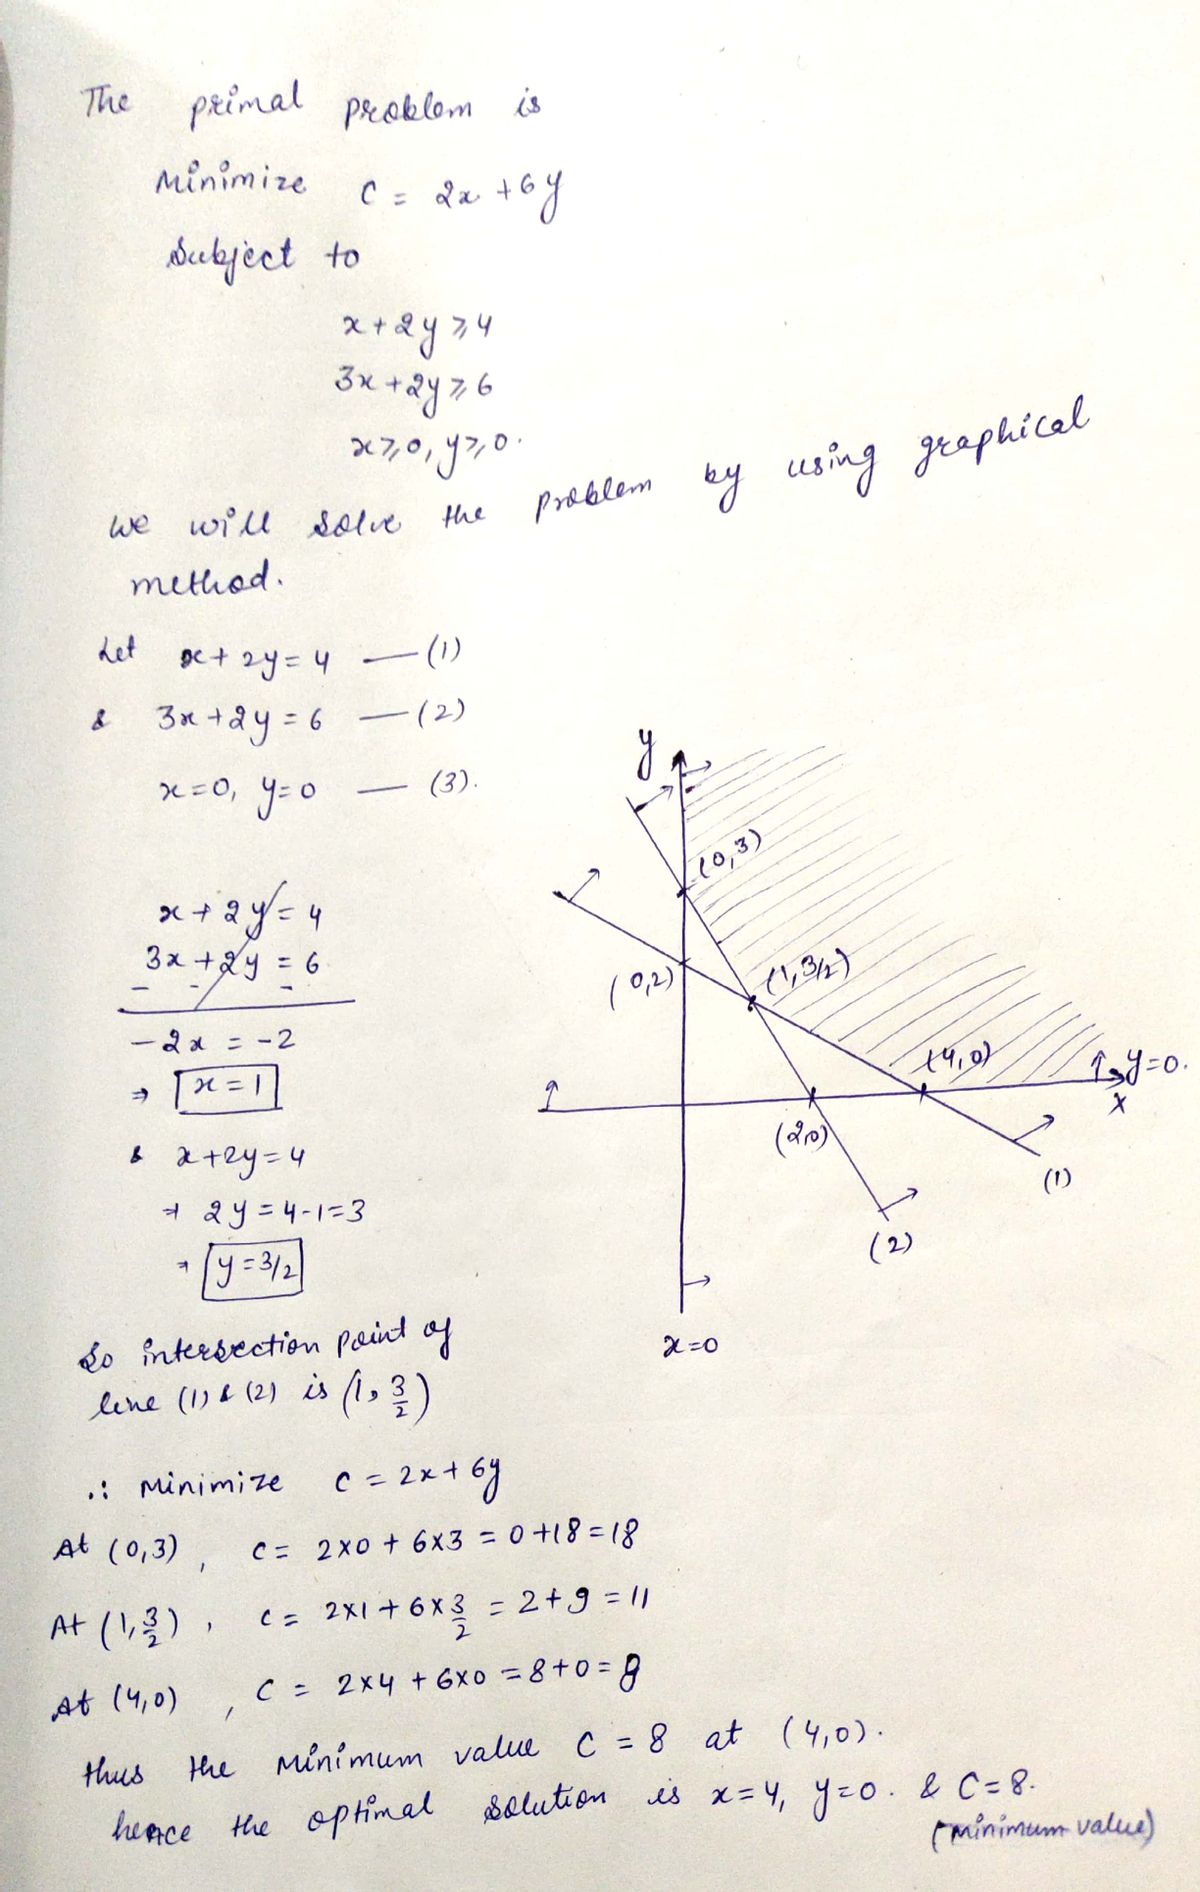 The primal problem is
Minimize C = 2x + 6y
Subject to
x + 2y ≥ 4
3x + 2y ≥ 6
x ≥ 0, y ≥ 0.
We will solve the problem by using graphical
method.
Let x + 2y = 4 —(1)
& 3x + 2y = 6 —(2)
x=0, y=0 — (3).
x + 2y = 4
3x + 2y = 6
- - -
-2x = -2
⇒ x = 1
& x+2y=4
⇒ 2y = 4-1=3
⇒ y = 3/2
y
(0,3)
(0,2)
(1,3/2)
(4,0)
y=0.
x
(2,0)
(1)
(2)
x=0
So intersection point of
line (1) & (2) is (1, 3/2)
∴ Minimize C = 2x + 6y
At (0,3), C = 2×0 + 6×3 = 0+18=18
At (1,3/2), C = 2×1 + 6×3/2 = 2+9 = 11
At (4,0), C = 2×4 + 6×0 = 8+0 = 8
thus the Minimum value C = 8 at (4,0).
hence the optimal solution is x=4, y=0. & C=8.
(minimum value)